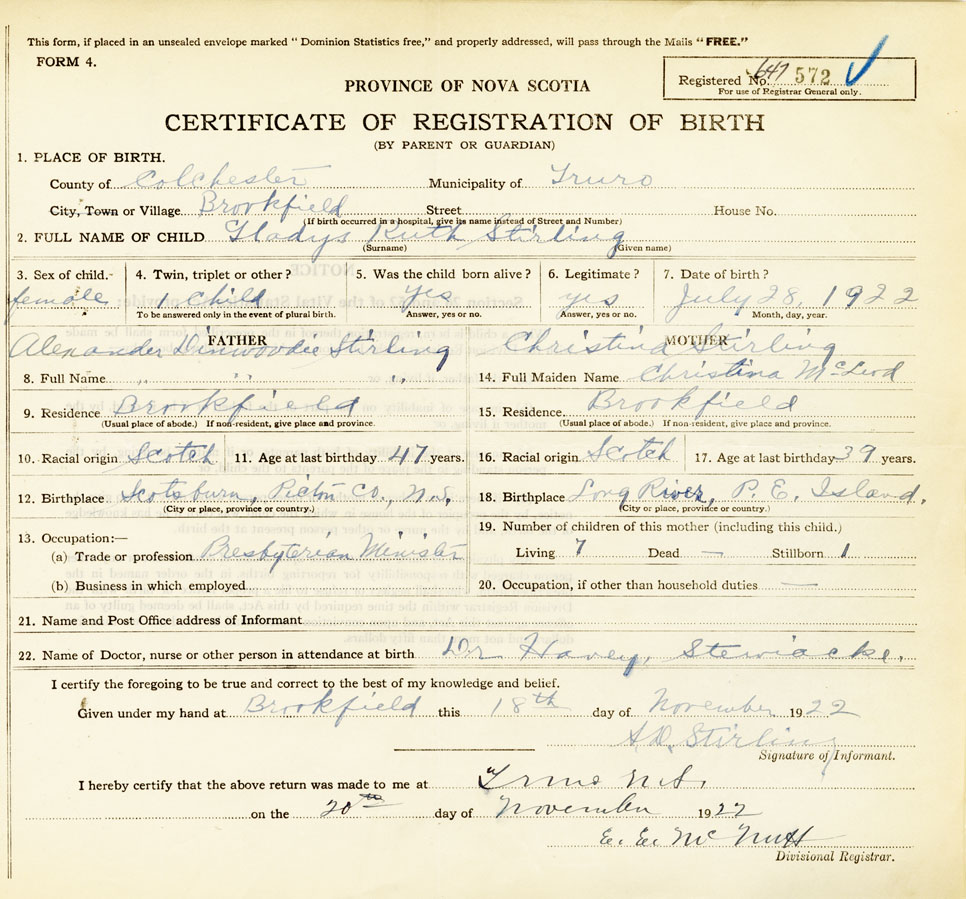 This form, if placed in an unsealed envelope marked "Dominion Statistics free," and properly addressed, will pass through the Mails "FREE."
FORM 4.
Registered No. 647 572
For use of Registrar General only.
PROVINCE OF NOVA SCOTIA
CERTIFICATE OF REGISTRATION OF BIRTH
(BY PARENT OR GUARDIAN)
1. PLACE OF BIRTH.
County of Colchester Municipality of Truro
City, Town or Village Brookfield Street House No.
(If birth occurred in a hospital, give its name instead of Street and Number)
2. FULL NAME OF CHILD Gladys Ruth Stirling
(Surname) (Given name)
3. Sex of child. 4. Twin, triplet or other? 5. Was the child born alive? 6. Legitimate? 7. Date of birth?
female 1 Child yes yes July 28, 1922
To be answered only in the event of plural birth. Answer, yes or no. Answer, yes or no. Month, day, year.
FATHER MOTHER
Alexander Dinwoodie Stirling Christina Stirling
8. Full Name " " " 14. Full Maiden Name Christina McLeod
9. Residence Brookfield 15. Residence Brookfield
(Usual place of abode.) If non-resident, give place and province. (Usual place of abode.) If non-resident, give place and province.
10. Racial origin Scotch 11. Age at last birthday 47 years. 16. Racial origin Scotch 17. Age at last birthday 39 years.
12. Birthplace Scotsburn, Pictou Co., N.S. 18. Birthplace Long River, P. E. Island.
(City or place, province or country.) (City or place, province or country.)
13. Occupation:— 19. Number of children of this mother (including this child.)
(a) Trade or profession Presbyterian Minister Living 7 Dead — Stillborn 1
(b) Business in which employed 20. Occupation, if other than household duties —
21. Name and Post Office address of Informant
22. Name of Doctor, nurse or other person in attendance at birth Dr Havey, Stewiacke.
I certify the foregoing to be true and correct to the best of my knowledge and belief.
Given under my hand at Brookfield this 18th day of November 1922
A.D. Stirling
Signature of Informant.
I hereby certify that the above return was made to me at Truro N.S.
on the 20th day of November 1922
E. E. McNutt
Divisional Registrar.